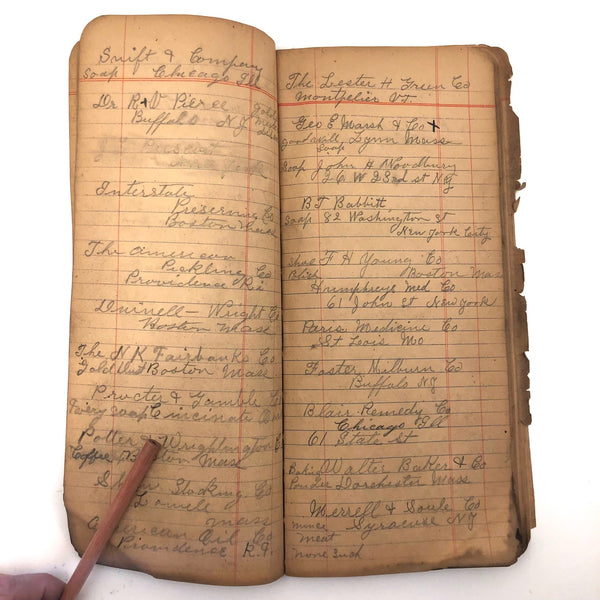 Swift & Company
Soap Chicago Ill
Dr R V Pierce Gold
Buffalo NY
Interstate
Preserving Co
Boston Mass
The American
Pickling Co
Providence Ri
Dwinell - Wright Co
Boston Mass
The N K Fairbanks Co
Gold Dust Boston Mass
Procter & Gamble Co
Fairy soap Cincinate
Potter & Wrightington
Coffee Boston Mass
Stocking Co
Lowell
mass
American Oil Co
Providence R.I.
The Lester H Green Co
Montpelier VT
Geo E Marsh & Co x
Goodwill Lynn Mass
Soap
Soap John H Woodbury
26 W 23rd st NY
BT Babbitt
Soap 82 Washington St
New York City
Shoe F H Young Co
Boston Mass
Humphreys Med Co
61 John St New York
Paris Medicine Co
St Lois Mo
Foster Milburn Co
Buffalo NY
Blair Remedy Co
Chicago Ill
61 State st
Bakin Walter Baker & Co
Powder Dorchester Mass
Merrell & Soule Co
Mince Syracuse NY
Meat
None Such